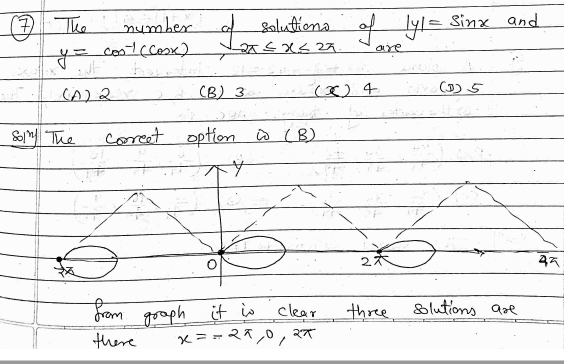 7 The number of solutions of |y| = Sinx and
y = cos⁻¹(Cosx), 2π ≤ x ≤ 2π are
(A) 2 (B) 3 (C) 4 (D) 5
Solⁿ) The correct option is (B)
Y
-2π 0 2π 4π
from graph it is clear three solutions are
there x = -2π, 0, 2π